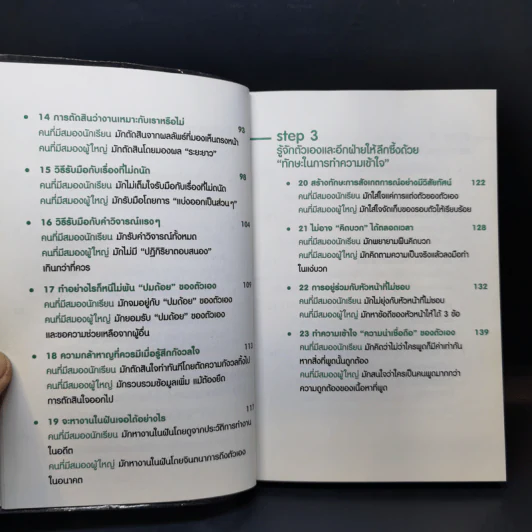 14 การตัดสินว่างานเหมาะกับเราหรือไม่ 93
คนที่มีสมองนักเรียน มักตัดสินจากผลลัพธ์ที่มองเห็นตรงหน้า
คนที่มีสมองผู้ใหญ่ มักตัดสินโดยมองผล "ระยะยาว"
15 วิธีรับมือกับเรื่องที่ไม่ถนัด 98
คนที่มีสมองนักเรียน มักไม่เต็มใจรับมือกับเรื่องที่ไม่ถนัด
คนที่มีสมองผู้ใหญ่ มักรับมือโดยการ "แบ่งออกเป็นส่วนๆ"
16 วิธีรับมือกับคำวิจารณ์แรงๆ 104
คนที่มีสมองนักเรียน มักรับคำวิจารณ์ทั้งหมด
คนที่มีสมองผู้ใหญ่ มักไม่มี "ปฏิกิริยาตอบสนอง"
เกินกว่าที่ควร
17 ทำอย่างไรก็หนีไม่พ้น "ปมด้อย" ของตัวเอง 109
คนที่มีสมองนักเรียน มักจมอยู่กับ "ปมด้อย" ของตัวเอง
คนที่มีสมองผู้ใหญ่ มักยอมรับ "ปมด้อย" ของตัวเอง
และขอความช่วยเหลือจากผู้อื่น
18 ความกล้าหาญที่ควรมีเมื่อรู้สึกกังวลใจ 113
คนที่มีสมองนักเรียน มักตัดสินใจทำทันทีโดยตัดความกังวลทิ้งไป
คนที่มีสมองผู้ใหญ่ มักรวบรวมข้อมูลเพิ่ม แม้ต้องยืด
การตัดสินใจออกไป
19 จะหางานในฝันเจอได้อย่างไร 117
คนที่มีสมองนักเรียน มักหางานในฝันโดยดูจากประวัติการทำงาน
ในอดีต
คนที่มีสมองผู้ใหญ่ มักหางานในฝันโดยจินตนาการถึงตัวเอง
ในอนาคต
step 3
รู้จักตัวเองและอีกฝ่ายให้ลึกซึ้งด้วย
"ทักษะในการทำความเข้าใจ"
20 สร้างทักษะการสังเกตการณ์อย่างมีวิสัยทัศน์ 122
คนที่มีสมองนักเรียน มักใส่ใจแค่การแต่งตัวของตัวเอง
คนที่มีสมองผู้ใหญ่ มักใส่ใจจัดเก็บของรอบตัวให้เรียบร้อย
21 ไม่อาจ "คิดบวก" ได้ตลอดเวลา 128
คนที่มีสมองนักเรียน มักพยายามฝืนคิดบวก
คนที่มีสมองผู้ใหญ่ มักคิดตามความเป็นจริงแล้วลงมือทำ
ในแง่บวก
22 การอยู่ร่วมกับหัวหน้าที่ไม่ชอบ 132
คนที่มีสมองนักเรียน มักไม่ยุ่งกับหัวหน้าที่ไม่ชอบ
คนที่มีสมองผู้ใหญ่ มักหาข้อดีของหัวหน้าให้ได้ 3 ข้อ
23 ทำความเข้าใจ "ความน่าเชื่อถือ" ของตัวเอง 139
คนที่มีสมองนักเรียน มักคิดว่าไม่ว่าใครพูดก็มีค่าเท่ากัน
หากสิ่งที่พูดนั้นถูกต้อง
คนที่มีสมองผู้ใหญ่ มักสนใจว่าใครเป็นคนพูดมากกว่า
ความถูกต้องของเนื้อหาที่พูด